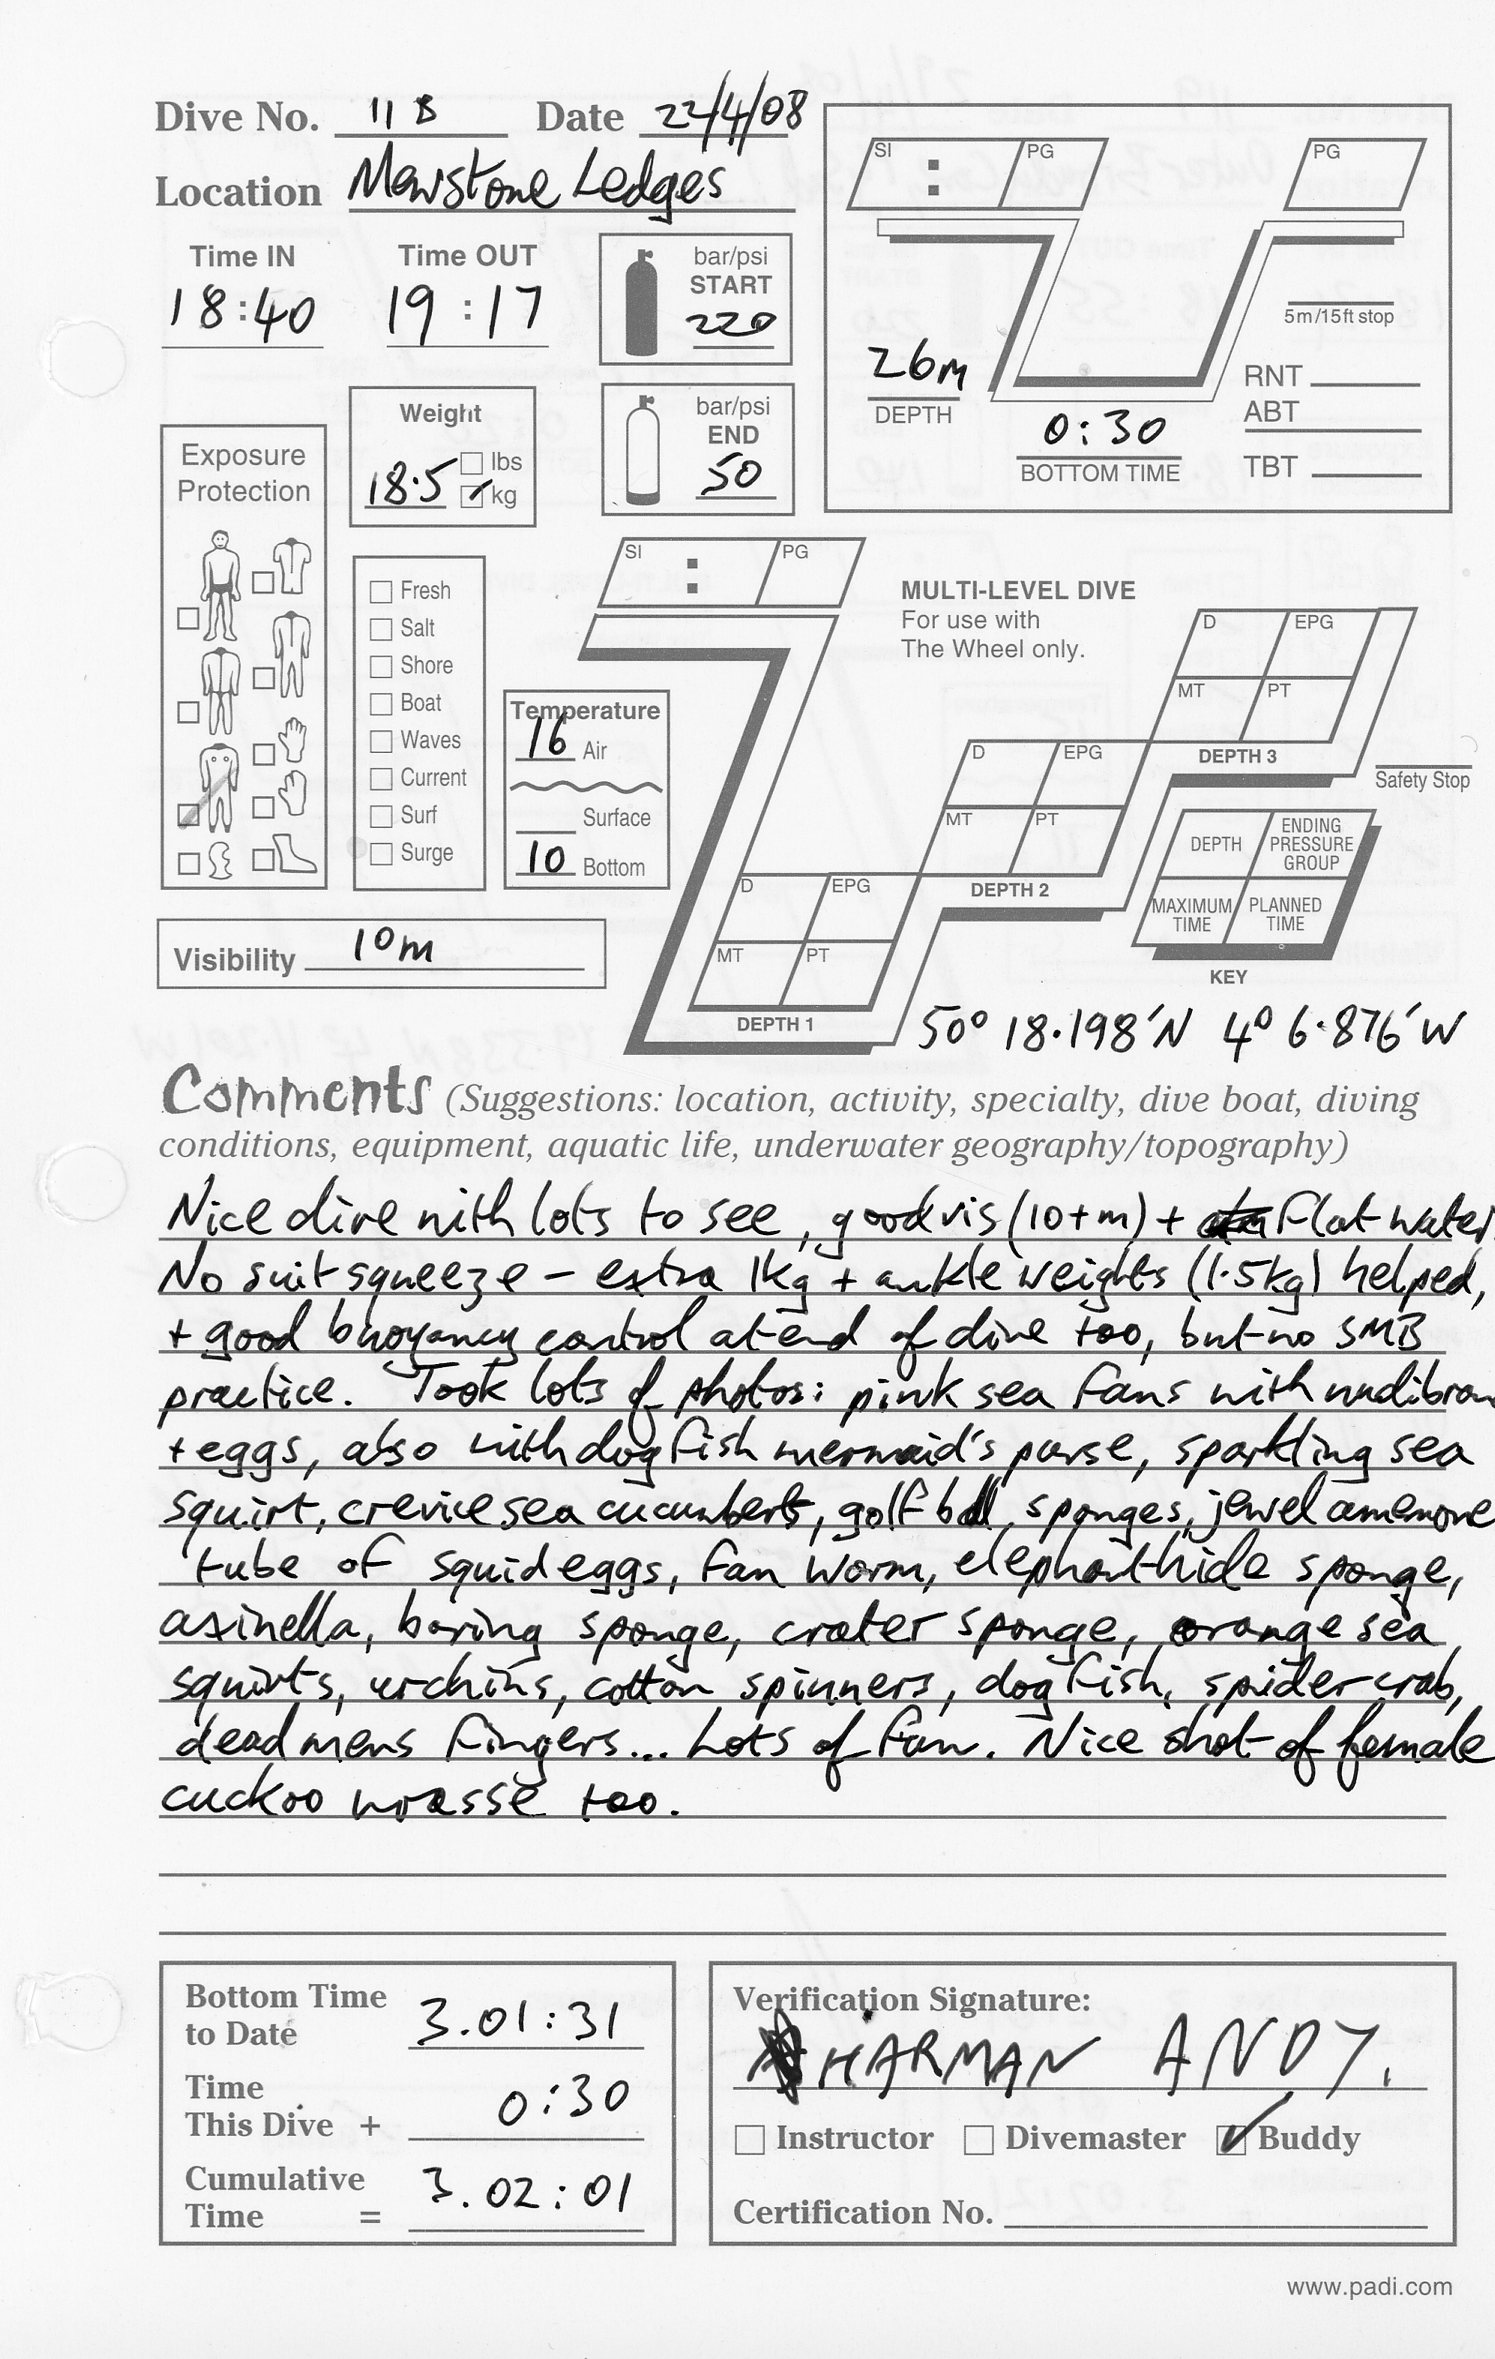 Dive No. 118 Date 22/4/08
Location Mewstone Ledges
Time IN Time OUT
18:40 19:17
bar/psi
START
220
bar/psi
END
50
Weight
18.5 lbs
kg
Exposure
Protection
Fresh
Salt
Shore
Boat
Waves
Current
Surf
Surge
Temperature
16 Air
Surface
10 Bottom
Visibility 10m
SI : PG PG
5m/15ft stop
26m
DEPTH
0:30
BOTTOM TIME
RNT
ABT
TBT
SI : PG
MULTI-LEVEL DIVE
For use with
The Wheel only.
D EPG
MT PT
DEPTH 3
Safety Stop
D EPG
MT PT
DEPTH 2
D EPG
MT PT
DEPTH 1
DEPTH ENDING PRESSURE GROUP
MAXIMUM TIME PLANNED TIME
KEY
50° 18.198'N 4° 6.876'W
Comments (Suggestions: location, activity, specialty, dive boat, diving
conditions, equipment, aquatic life, underwater geography/topography)
Nice dive with lots to see, good vis (10+m) + flat water
No suit squeeze - extra 1kg + ankle weights (1.5kg) helped,
+ good buoyancy control at end of dive too, but no SMB
practice. Took lots of photos: pink sea fans with nudibran
+ eggs, also with dogfish mermaid's purse, sparkling sea
squirt, crevice sea cucumbers, golf ball sponges, jewel anemone
tube of squid eggs, fan worm, elephant hide sponge,
axinella, boring sponge, crater sponge, orange sea
squirts, urchins, cotton spinners, dogfish, spider crab,
dead mens fingers... Lots of fun. Nice shot of female
cuckoo wrasse too.
Bottom Time
to Date 3.01:31
Time
This Dive + 0:30
Cumulative
Time = 3.02:01
Verification Signature:
HARMAN ANDY.
Instructor Divemaster Buddy
Certification No.
www.padi.com